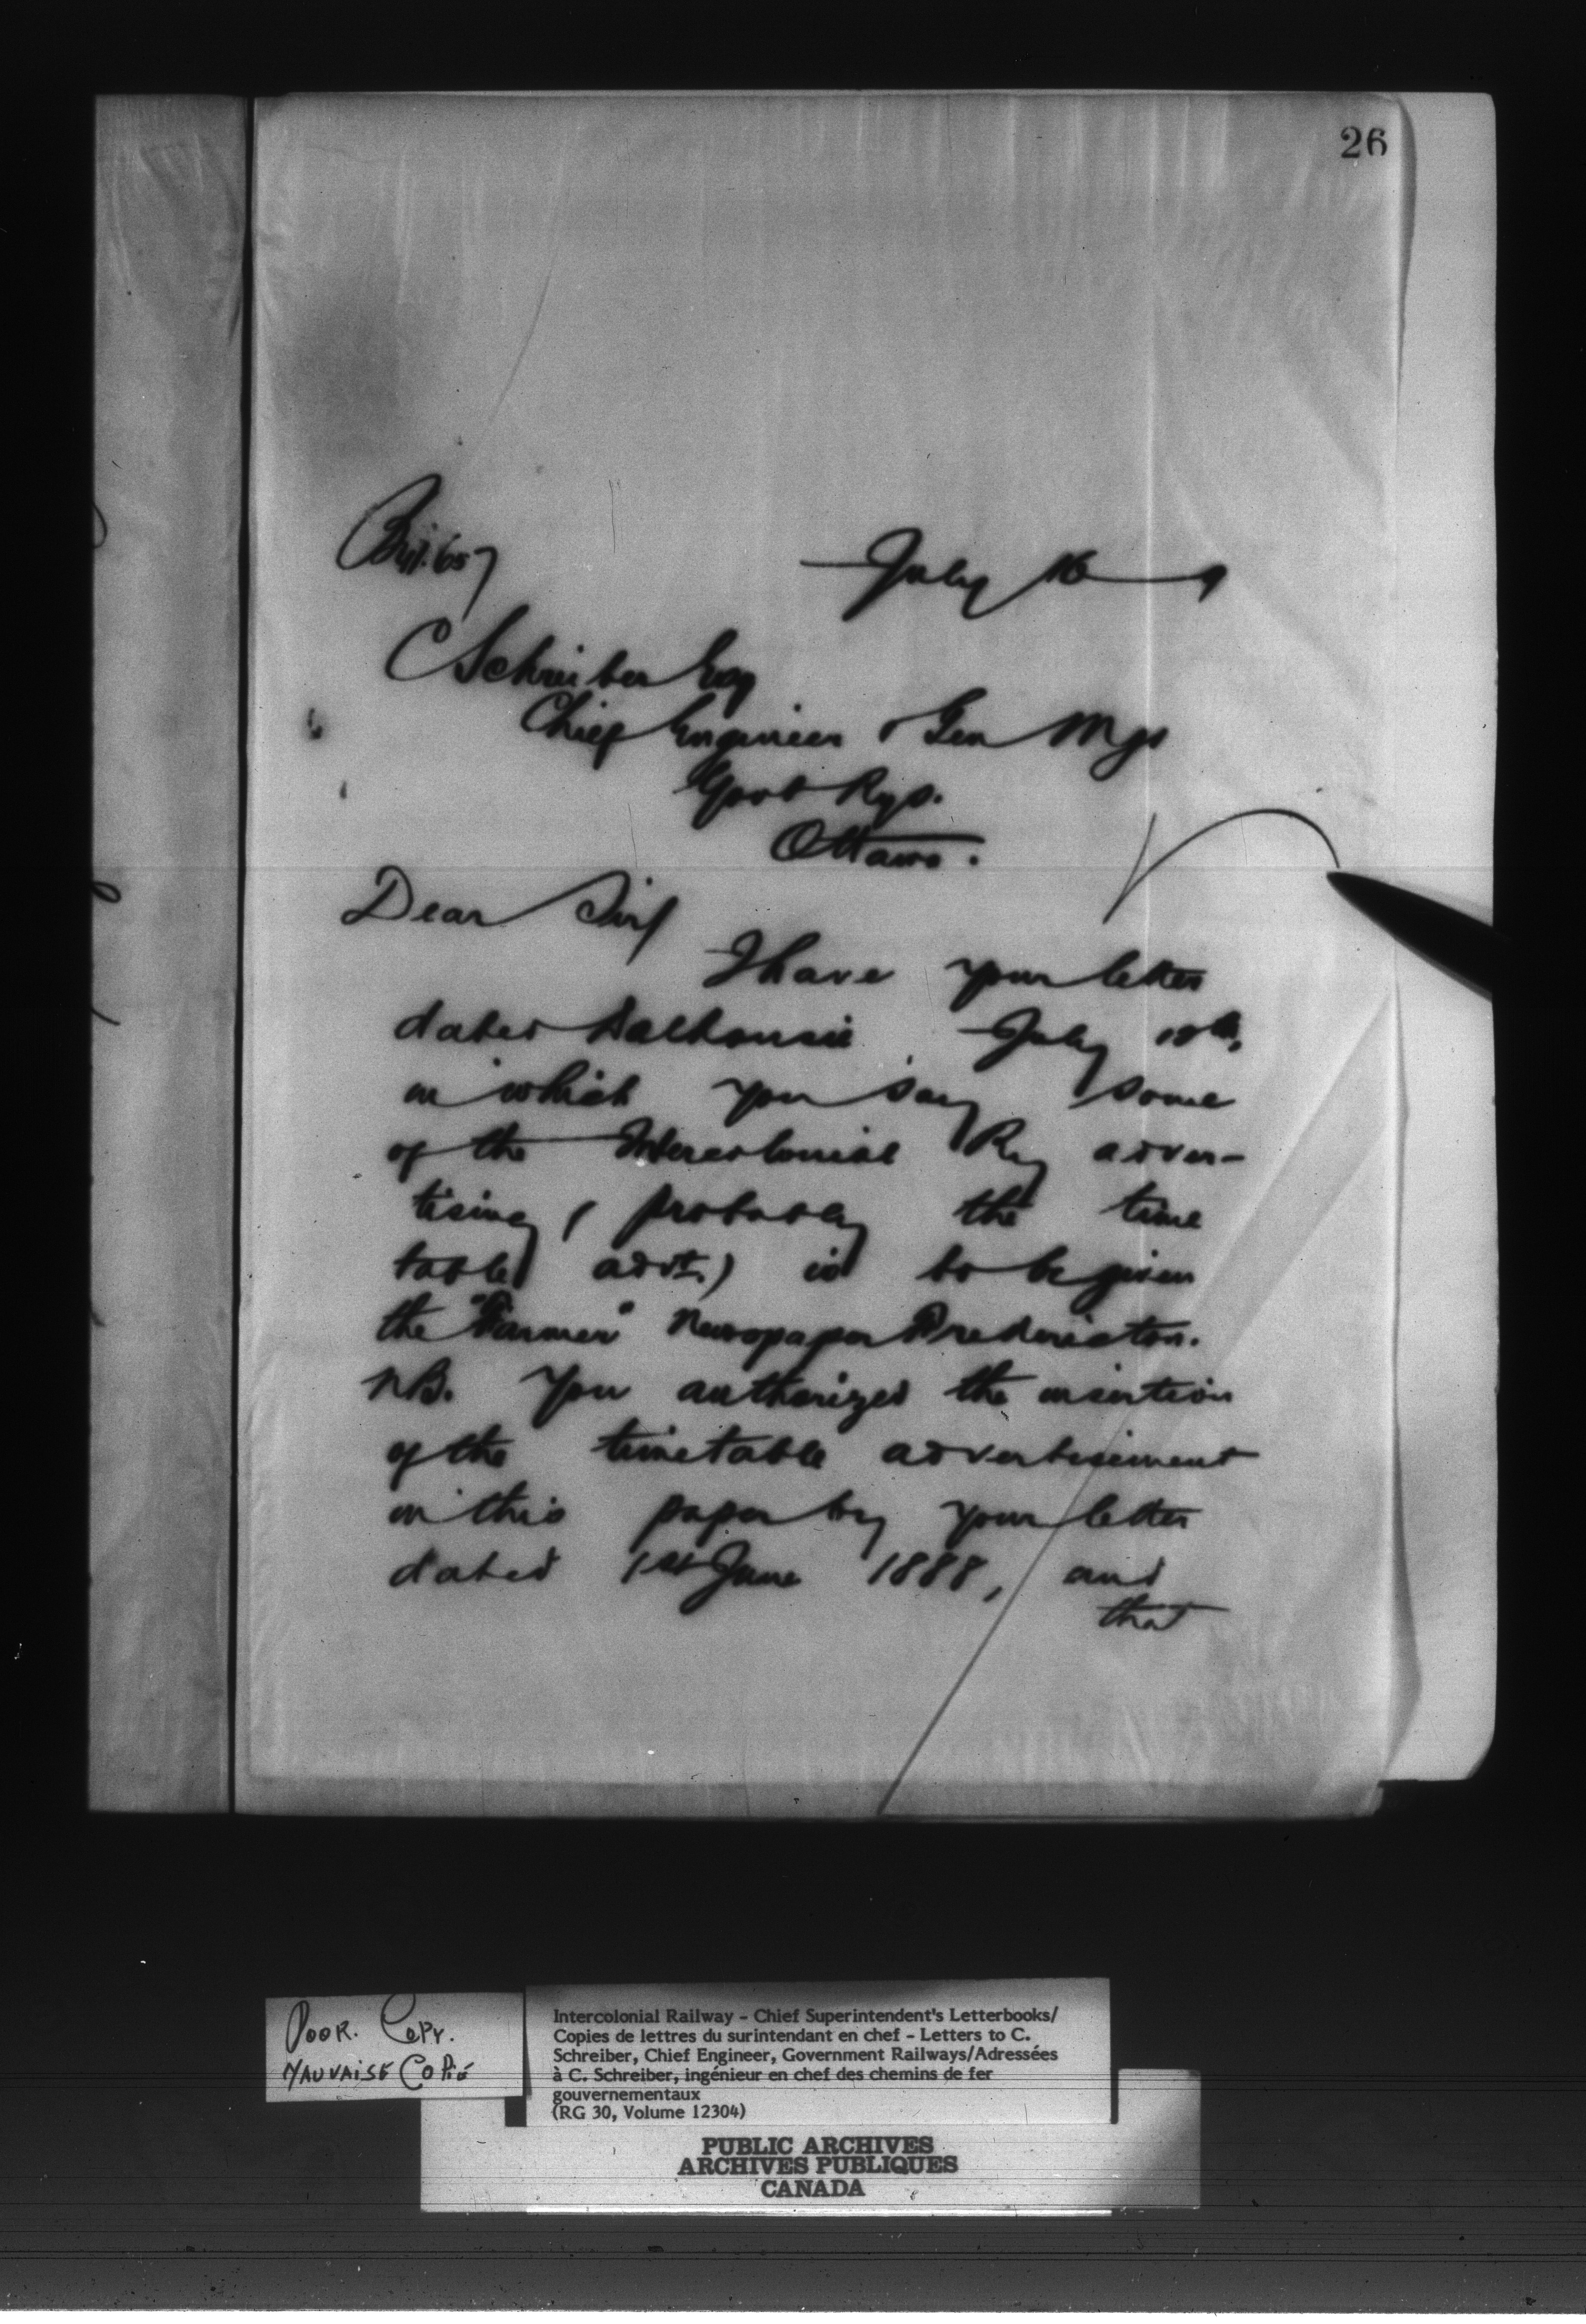 26
July 16 9
C Schreiber Esq
Chief Engineer & Gen Mgr
Govt Rys.
Ottawa.
Dear Sir/
I have your letter
dated Dalhousie July 10th,
in which you say some
of the Intercolonial Ry adver-
tising, (probably the time
table advt.) is to be given
the "Farmer" Newspaper Fredericton.
NB. You authorized the insertion
of the timetable advertisement
in this paper by your letter
dated 1st June 1888, and
that
POOR. COPY.
MAUVAISE COPIE
Intercolonial Railway - Chief Superintendent's Letterbooks/
Copies de lettres du surintendant en chef - Letters to C.
Schreiber, Chief Engineer, Government Railways/Adressées
à C. Schreiber, ingénieur en chef des chemins de fer
gouvernementaux
(RG 30, Volume 12304)
PUBLIC ARCHIVES
ARCHIVES PUBLIQUES
CANADA